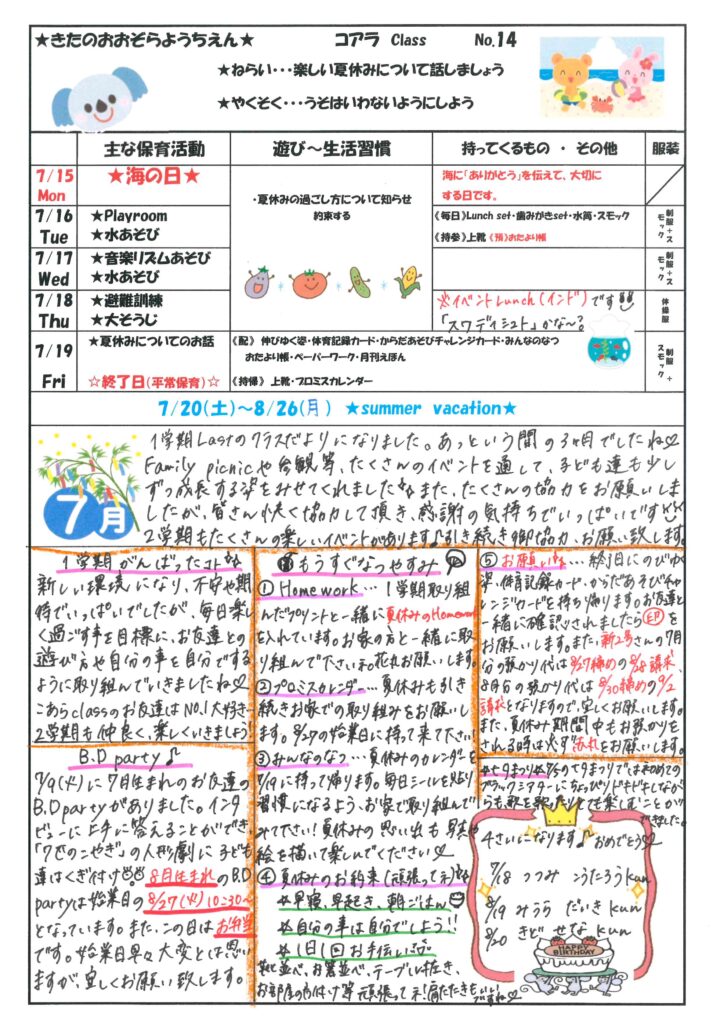 ★きたのおおぞらようちえん★ コアラ Class No.14
★ねらい・・・楽しい夏休みについて話しましょう
★やくそく・・・うそはいわないようにしよう
主な保育活動 遊び～生活習慣 持ってくるもの ・ その他 服装
7/15 Mon
★海の日★
・夏休みの過ごし方について知らせ
約束する
海に「ありがとう」を伝えて、大切に
する日です。
7/16 Tue
★Playroom
★水あそび
《毎日》Lunch set・歯みがきset・水筒・スモック
《持参》上靴 《預》おたより帳
制服＋スモック
7/17 Wed
★音楽リズムあそび
★水あそび
制服＋スモック
7/18 Thu
★避難訓練
★大そうじ
※イベントLunch(インド)です!!
「スワディシュト」かな～?
体操服
7/19 Fri
★夏休みについてのお話
☆終了日(平常保育)☆
《配》 伸びゆく姿・体育記録カード・からだあそびチャレンジカード・みんなのなつ
おたより帳・ペーパーワーク・月刊えほん
《持帰》 上靴・プロミスカレンダー
制服＋スモック
7/20(土)～8/26(月) ★summer vacation★
7月
1学期Lastのクラスだよりになりました。あっという間の3ヶ月でしたね♡
Family picnicや参観等、たくさんのイベントを通して、子ども達も少し
ずつ成長する姿をみせてくれました。また、たくさんの協力をお願いしま
したが、皆さん快く協力して頂き、感謝の気持ちでいっぱいです!!
2学期もたくさんの楽しいイベントがあります♪引き続き御協力、お願い致します。
1学期がんばったコト
新しい環境になり、不安や期
待でいっぱいでしたが、毎日楽し
く過ごす事を目標に、お友達との
遊び方や自分の事を自分でする
ように取り組んでいきましたね♡
こあらclassのお友達はNO.1大好き
2学期も仲良く、楽しくいきましょう!
B.D party♪
7/9(火)に7月生まれのお友達の
B.D partyがありました。インタ
ビューに上手に答えることができ、
「7ひきのこやぎ」の人形劇に子ども
達はくぎ付け 8月生まれのB.D
partyは始業日の8/27(火)10:30～
となっています。また、この日はお弁当
です。始業日早々大変とは思い
ますが、宜しくお願い致します。
もうすぐなつやすみ
① Home work… 1学期取り組
んだプリントと一緒に夏休みのHomework
を入れています。お家の方と一緒に取
り組んで下さいネ。花丸お願いします。
②プロミスカレンダー…夏休みも引き
続きお家での取り組みをお願いしま
す。8/27の始業日に持って来て下さい。
③みんなのなつ…夏休みのカレンダーを
7/19に持って帰ります。毎日シールを貼り
習慣になるよう、お家で取り組んで
みて下さい!夏休みの思い出も写真や
絵を描いて楽しんでください♡
④夏休みのお約束(頑張ってネ)
☆早寝、早起き、朝ごはん
☆自分の事は自分でしよう!!
☆1日1回お手伝い
靴並べ、お箸並べ、テーブル拭き、
お部屋の片付け等頑張ってネ!肩たたきもいいですね♡
⑤お願い…終了日にのびゆく
姿・体育記録カード、からだあそびチャ
レンジカードを持ち帰ります。お友達と
一緒に確認されましたら㊞を
お願いします。また、新2号さんの7月
分の預かり代は8/7締めの8/8請求、
8月分の預かり代は8/30締めの9/2
請求となりますので、宜しくお願いします。
また、夏休み期間中もお預かりを
される時は必ず名札をお願いします。
☆七夕まつり☆7/5の七夕まつりでは初めての
ブラックシアターにちょっぴりドキドキしなが
らも歌を歌ったりとても楽しむことが
できました。
4さいになります♪おめでとう♡
7/18 つつみ こうたろうkun
8/19 みうら だいきkun
8/20 きど せなkun
HAPPY
BIRTHDAY